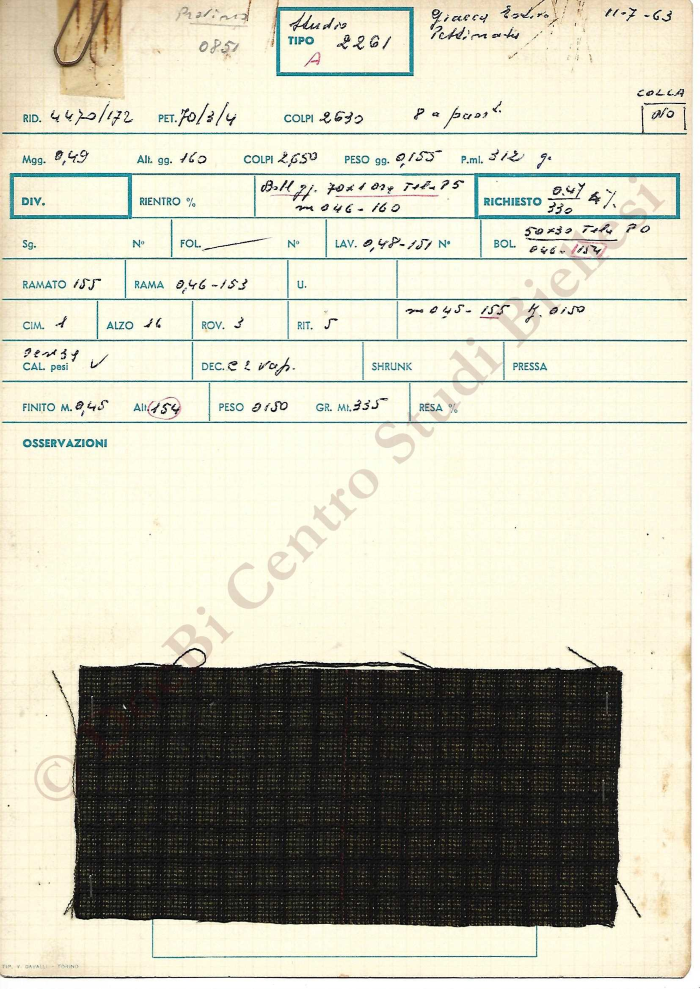 0851
Studio
TIPO 2261
A
Giacca Estiva
Pettinato
11-7-63
COLLA
NO
RID. 4470/172 PET. 70/3/4 COLPI 2630 8 a
Mgg. 0,49 Alt. gg. 160 COLPI 2,650 PESO gg. 0,155 P.ml. 312 g.
DIV.
RIENTRO %
70x1 ora Tela P5
m 046-160
RICHIESTO 0.47 %
330
Sg. N° FOL. N° LAV. 0,48-151 N° BOL. 50x30 Tela P0
046-1154
RAMATO 155 RAMA 0,46-153 U.
CIM. 1 ALZO 16 ROV. 3 RIT. 5 m 045-155 g. 0150
CAL. pesi DEC. C 2 vap. SHRUNK PRESSA
FINITO M. 0,45 Alt. 154 PESO 0150 GR. Mt. 335 RESA %
OSSERVAZIONI
© Bi Centro Studi Biellesi
TIP. V. CAVALLI - TORINO